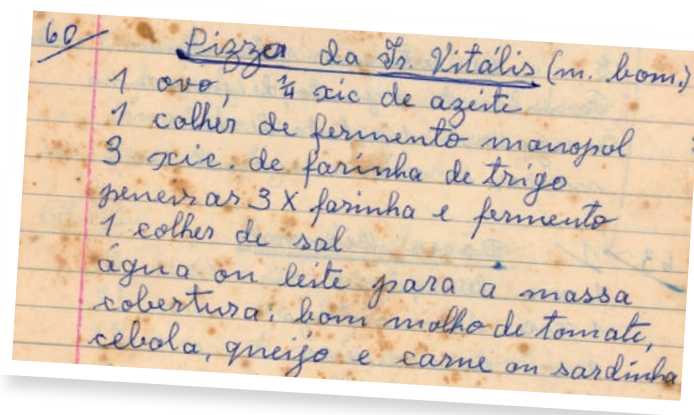 60
Pizza da Ir. Vitális (m. bom.)
1 ovo, 1/4 xic de azeite
1 colher de fermento manopol
3 xic. de farinha de trigo
peneirar 3 X farinha e fermento
1 colher de sal
água ou leite para a massa
cobertura: bom molho de tomate,
cebola, queijo e carne ou sardinha